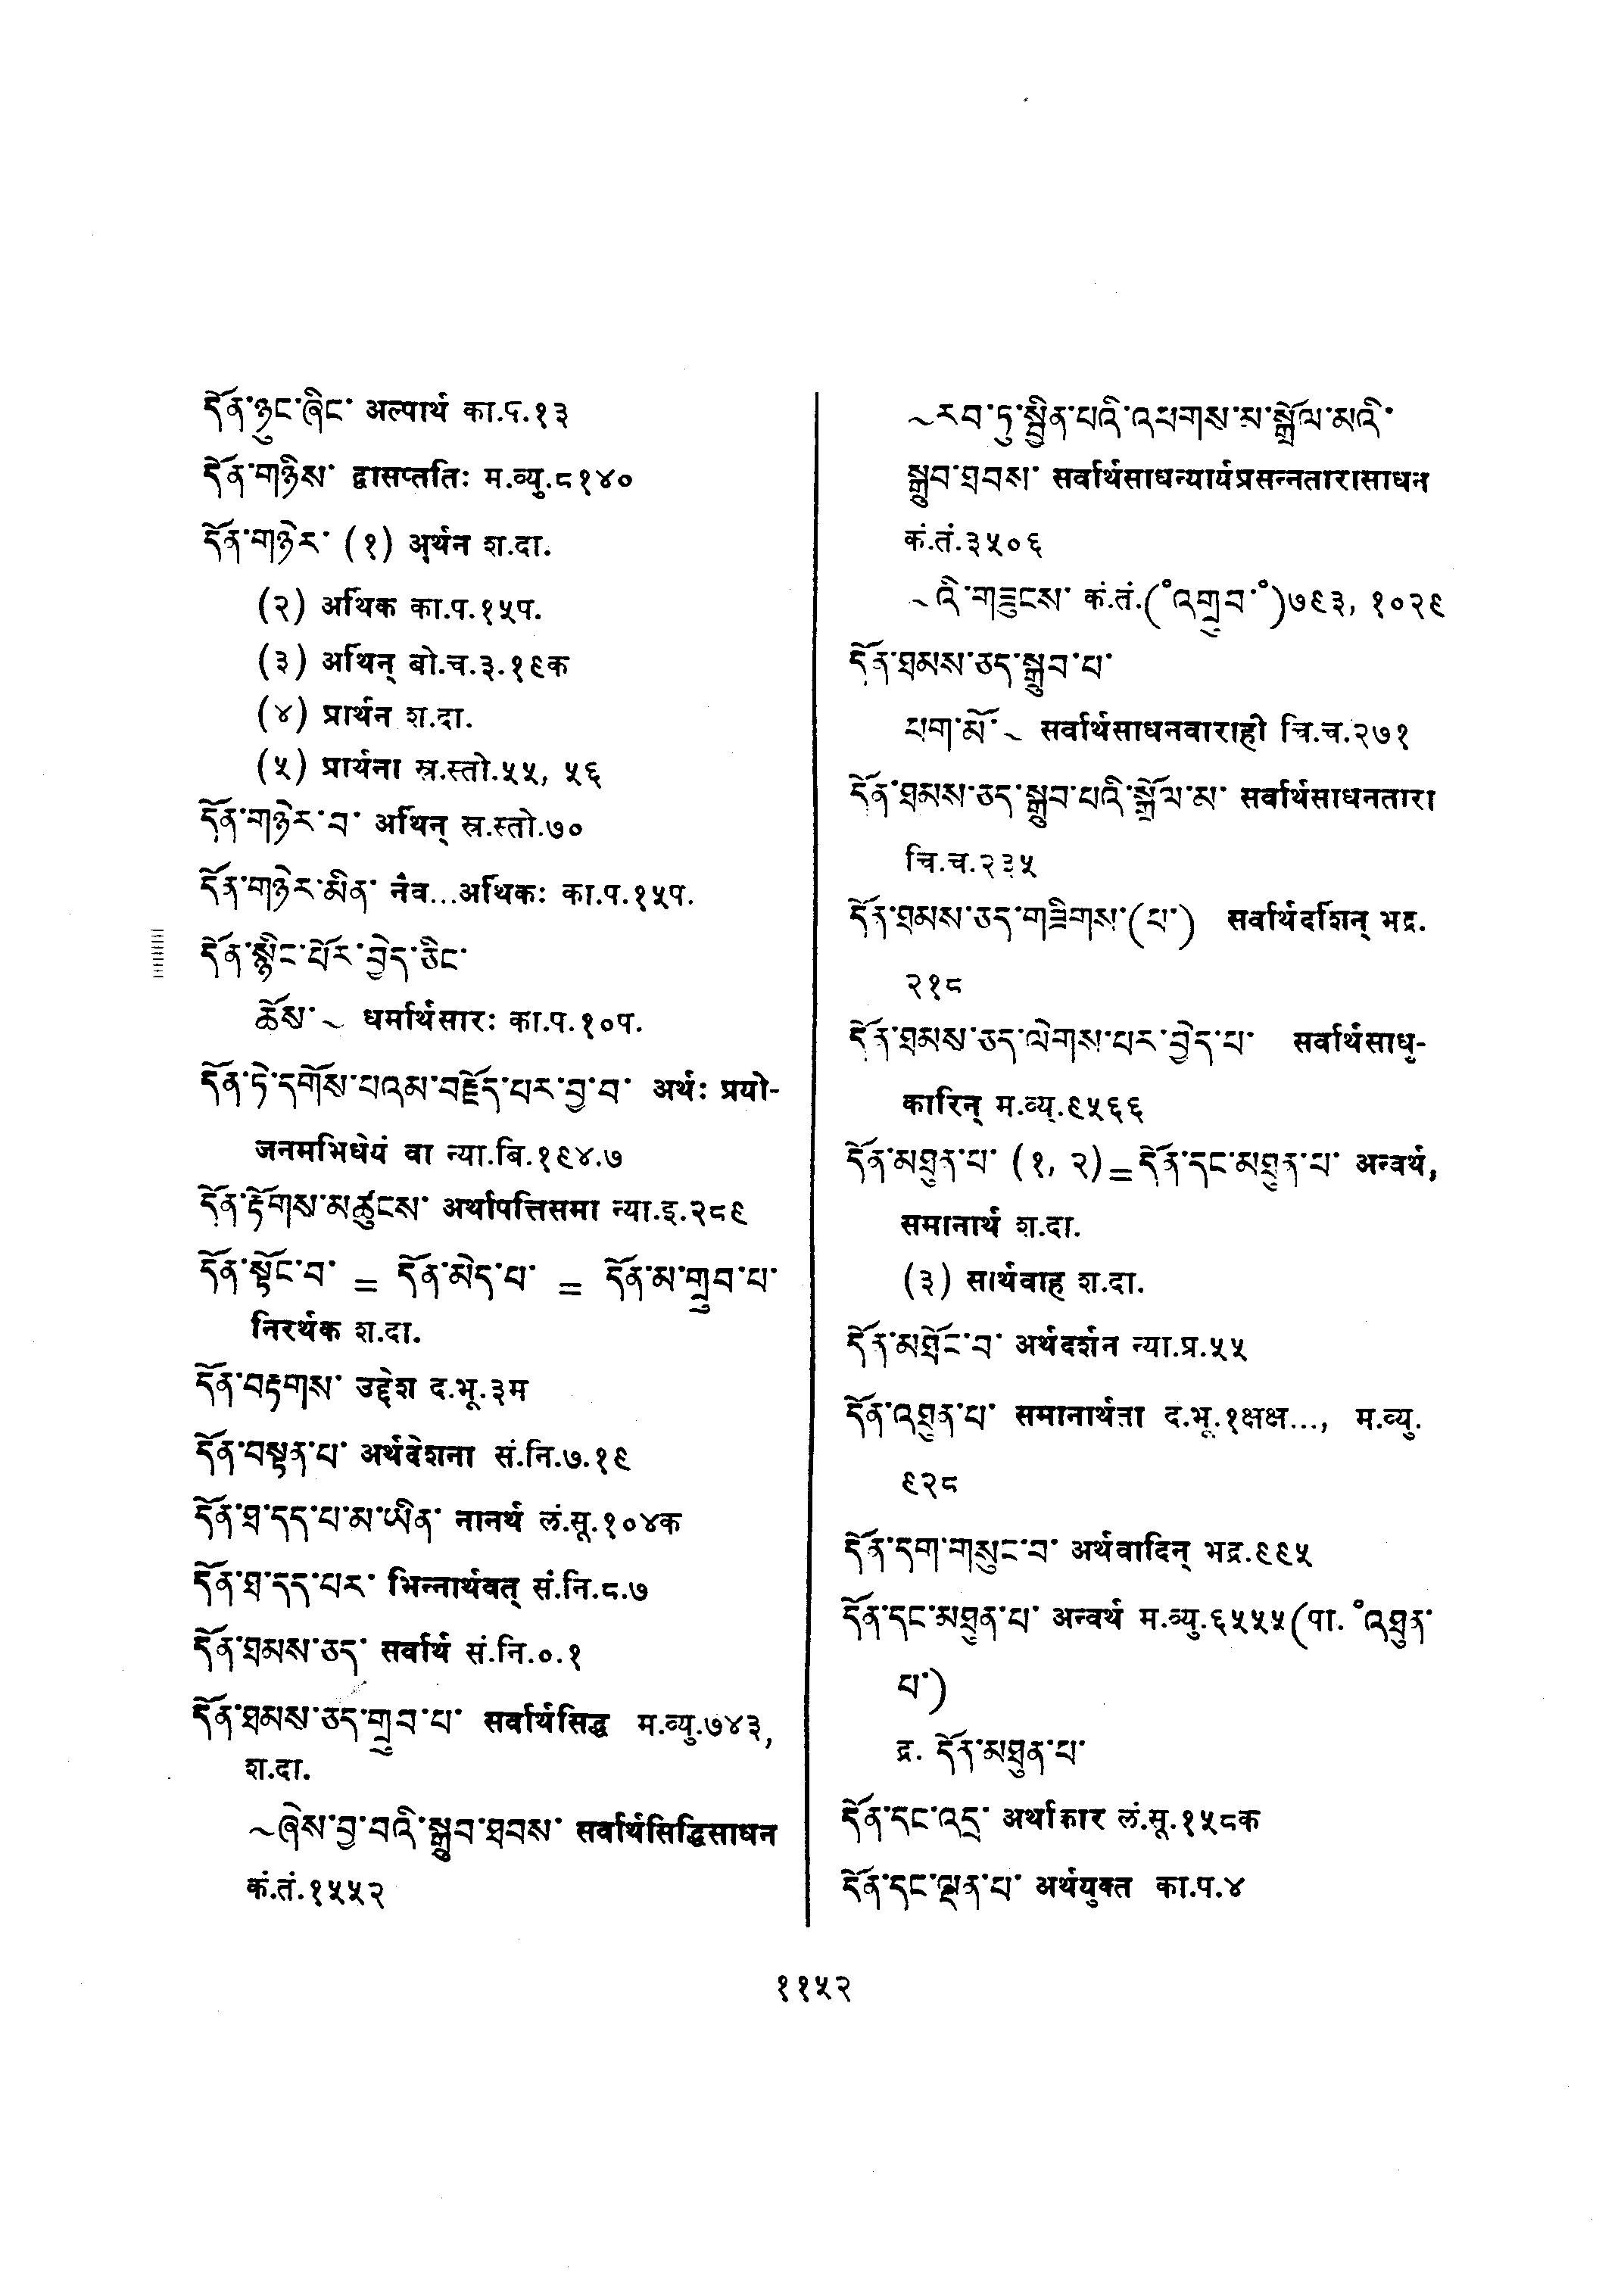 དོན་ཉུང་ཞིང་ अल्पार्थ का.प.१३
དོན་གཉིས་ द्वासप्ततिः म.व्यु.८१४०
དོན་གཉེར་ (१) अर्थन श.दा.
(२) अर्थिक का.प.१५प.
(३) अर्थिन् बो.च.३.१९क
(४) प्रार्थन श.दा.
(५) प्रार्थना स्र.स्तो.५५, ५६
དོན་གཉེར་བ་ अर्थिन् स्र.स्तो.७०
དོན་གཉེར་མིན་ नैव...अर्थिकः का.प.१५प.
དོན་སྙིང་པོར་བྱེད་ཅིང་
ཆོས་~ धर्मार्थसारः का.प.१०प.
དོན་ཏེ་དགོས་པའམ་བརྗོད་པར་བྱ་བ་ अर्थः प्रयो-
जनमभिधेयं वा न्या.बि.१९४.७
དོན་རྟོགས་མཚུངས་ अर्थापत्तिसमा न्या.इ.२८९
དོན་སྟོང་བ་ = དོན་མེད་པ་ = དོན་མ་གྲུབ་པ་
निरर्थक श.दा.
དོན་བརྟགས་ उद्देश द.भू.३म
དོན་བསྟན་པ་ अर्थदेशना सं.नि.७.१९
དོན་ཐ་དད་པ་མ་ཡིན་ नानर्थ लं.सू.१०४क
དོན་ཐ་དད་པར་ भिन्नार्थवत् सं.नि.८.७
དོན་ཐམས་ཅད་ सर्वार्थ सं.नि.०.१
དོན་ཐམས་ཅད་གྲུབ་པ་ सर्वार्थसिद्ध म.व्यु.७४३,
श.दा.
~ཞེས་བྱ་བའི་སྒྲུབ་ཐབས་ सर्वार्थसिद्धिसाधन
कं.तं.१५५२
~རབ་ཏུ་སྦྱིན་པའི་འཕགས་མ་སྒྲོལ་མའི་
སྒྲུབ་ཐབས་ सर्वार्थसाधन्यार्यप्रसन्नतारासाधन
कं.तं.३५०६
~འི་གཟུངས་ कं.तं.(°འགྲུབ་°)७९३, १०२९
དོན་ཐམས་ཅད་སྒྲུབ་པ་
ཕག་མོ་~ सर्वार्थसाधनवाराही त्रि.च.२७१
དོན་ཐམས་ཅད་སྒྲུབ་པའི་སྒྲོལ་མ་ सर्वार्थसाधनतारा
त्रि.च.२३५
དོན་ཐམས་ཅད་གཟིགས་(པ་) सर्वार्थदर्शिन् भद्र.
२१८
དོན་ཐམས་ཅད་ལེགས་པར་བྱེད་པ་ सर्वार्थसाधु-
कारिन् म.व्यु.९५६६
དོན་མཐུན་པ་ (१, २)=དོན་དང་མཐུན་པ་ अन्वर्थ,
समानार्थ श.दा.
(३) सार्थवाह श.दा.
དོན་མཐོང་བ་ अर्थदर्शन न्या.प्र.५५
དོན་འཐུན་པ་ समानार्थता द.भू.१क्षक्ष..., म.व्यु.
९२८
དོན་དག་གསུང་བ་ अर्थवादिन् भद्र.९९५
དོན་དང་མཐུན་པ་ अन्वर्थ म.व्यु.६५५५(पा. °འཐུན་
པ་)
द्र. དོན་མཐུན་པ་
དོན་དང་འདྲ་ अर्थाकार लं.सू.१५८क
དོན་དང་ལྡན་པ་ अर्थयुक्त का.प.४
११५२